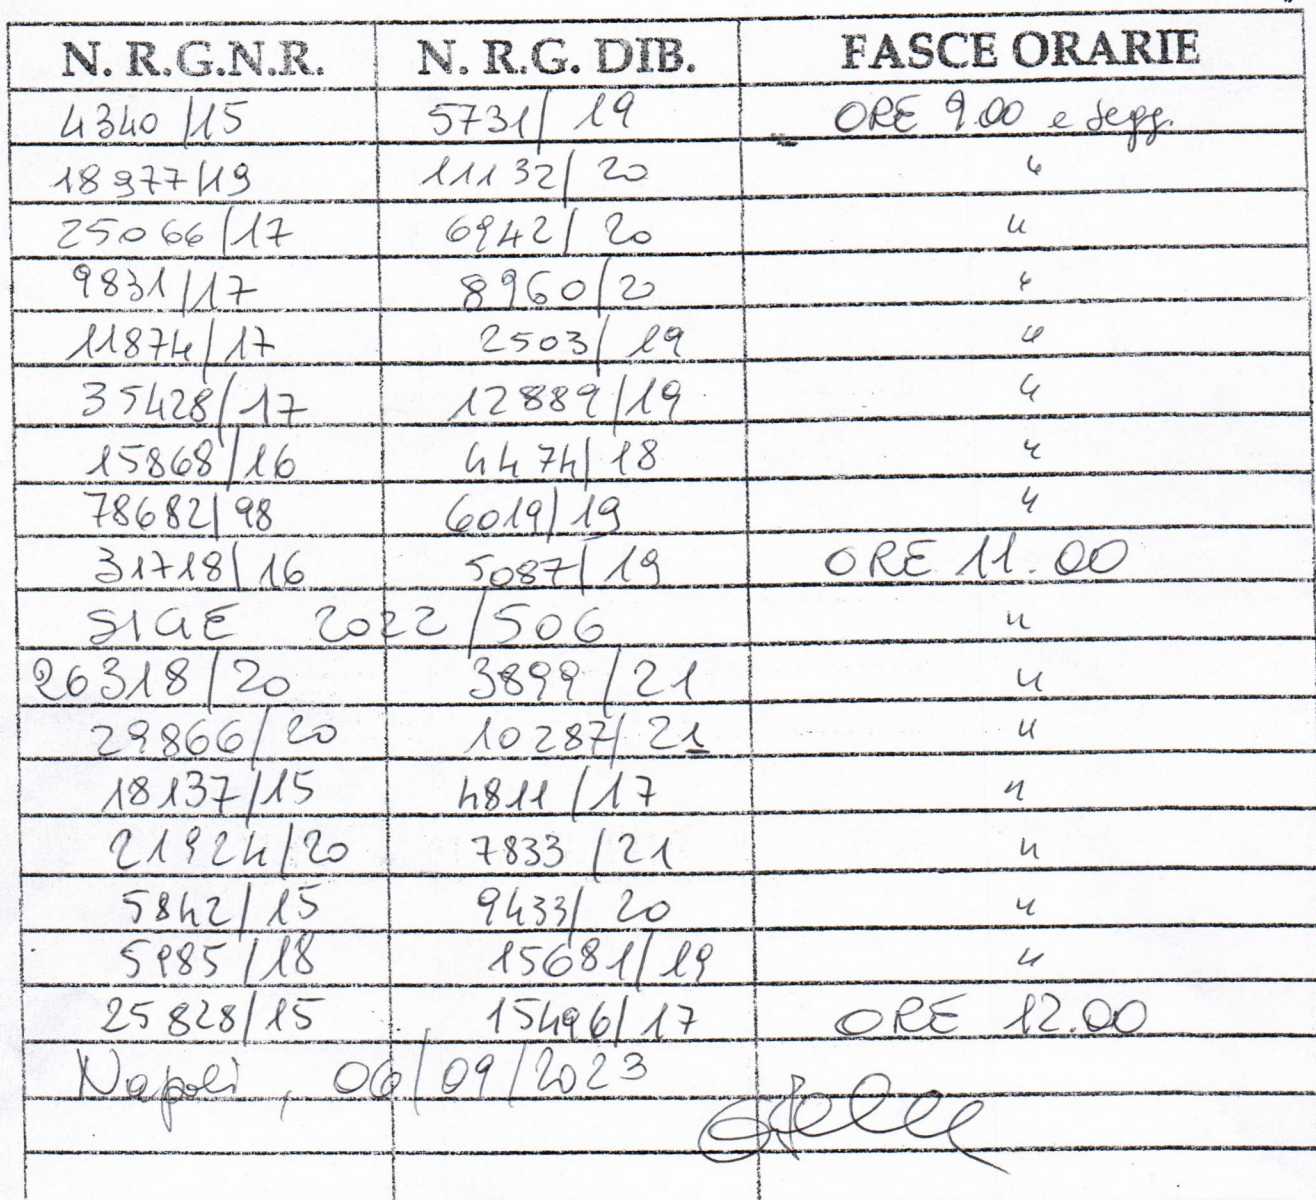 N. R.G.N.R. N. R.G. DIB. FASCE ORARIE
4340/15 5731/19 ORE 9.00 e segg.
18977/19 11132/20 "
25066/17 6942/20 "
9831/17 8960/20 "
11874/17 2503/19 "
35428/17 12889/19 "
15868/16 4474/18 "
78682/98 6019/19 "
31718/16 5087/19 ORE 11.00
SIGE 2022/506 "
26318/20 3899/21 "
29866/20 10287/21 "
18137/15 4811/17 "
21924/20 7833/21 "
5842/15 9433/20 "
5985/18 15681/19 "
25828/15 15496/17 ORE 12.00
Napoli, 06/09/2023